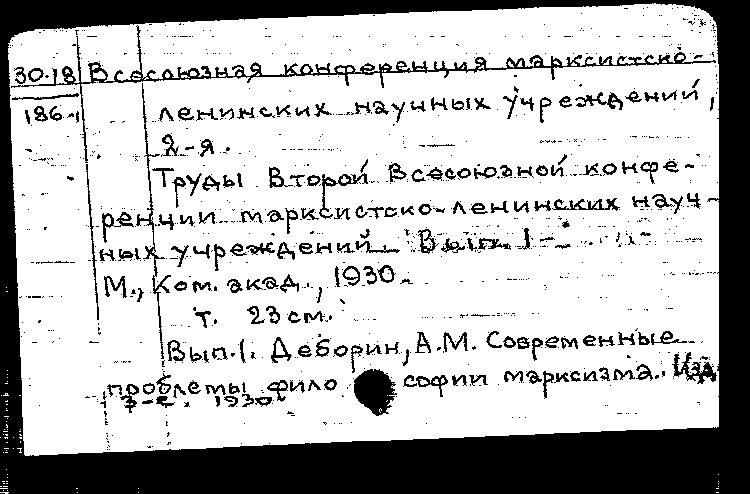 30.18 Всесоюзная конференция марксистско-
186-1 ленинских научных учреждений,
2-я.
Труды Второй Всесоюзной конфе-
ренции марксистско-ленинских науч-
ных учреждений. Вып. 1-
М., Ком. акад., 1930-
т. 23 см.
Вып. 1. Деборин, А.М. Современные
проблемы фило софии марксизма. Изд
3-е. 1930.